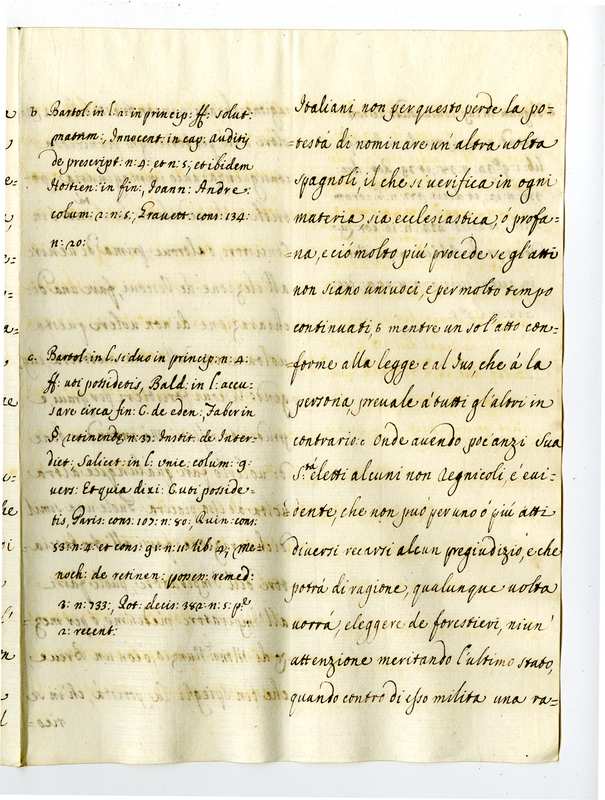 b Bartol: in l: 2: in princip: ff: solut:
matrim:, Innocent: in cap: auditis
de prescript: n: 4:, et n: 5:, et ibidem
Hostien: in fin:, Joann: Andre:
colum: 2: n: 5:, Gravett: cons: 134:
n: 20:
c. Bartol: in l. si duo in princip: n: 4:
ff: uti possidetis, Bald: in l: accu:
sare circa fin: C. de eden:, Faber in
§. retinendę n: 37: Instit: de Inter=
dict: Salicet: in l: unic: colum: 9:
vers: Et quia dixi: C. uti posside=
tis, Paris: cons: 107: n: 80:, Ruin: cons:
53: n: 4: et cons: 91: n: 11: lib: 4:, Me=
noch: de retinen: possess: remed:
3: n: 733:, Rot: decis: 382: n: 5: pe
2: recent:
Italiani, non per questo perde la po=
=testá di nominare un' altra uolta
spagnoli, il che si verifica in ogni
materia, sia ecclesiastica, ó profa=
=na, e ció molto piú procede se gl'atti
non siano univoci, e per molto tempo
continuati, b mentre un sol'atto con=
=forme alla legge e al Jus, che á la
persona, prevale á tutti gl'altri in
contrario: c Onde avendo poc'anzi Sua
S.tá eletti alcuni non Regnicoli, é eui=
=dente, che non puó per uno ó piú atti
diversi recarsi alcun pregiudizio, e che
potrá di ragione, qualunque uolta
uorrá, eleggere de forestieri, niun'
attenzione meritando l'ultimo stato,
quando contro di esso milita una ra=